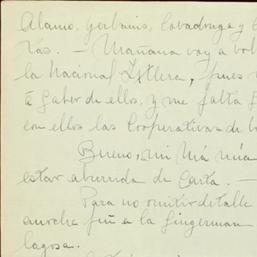 Alamo, Gerbinis, Covadonga y C
ras. — Mañana voy a vol
la Nacional Istlera, pues
á saber de ellos, y me falta
con ellos las Cooperativas de
Bueno, mi
estar aburrida de carta. —
Para no omitir detalle
anoche fuí a la Singerman
lagosa.